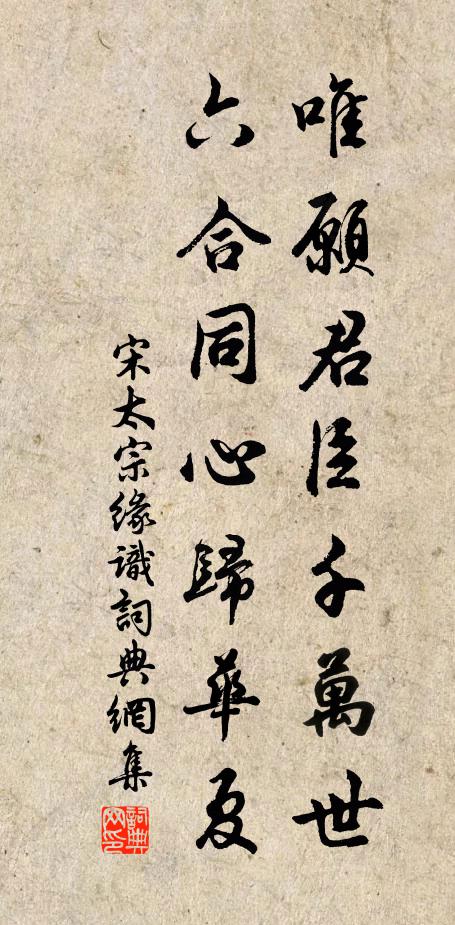 唯願君臣千萬世
六合同心歸華夏
宋太宗緣識詞典網集
詞典網印